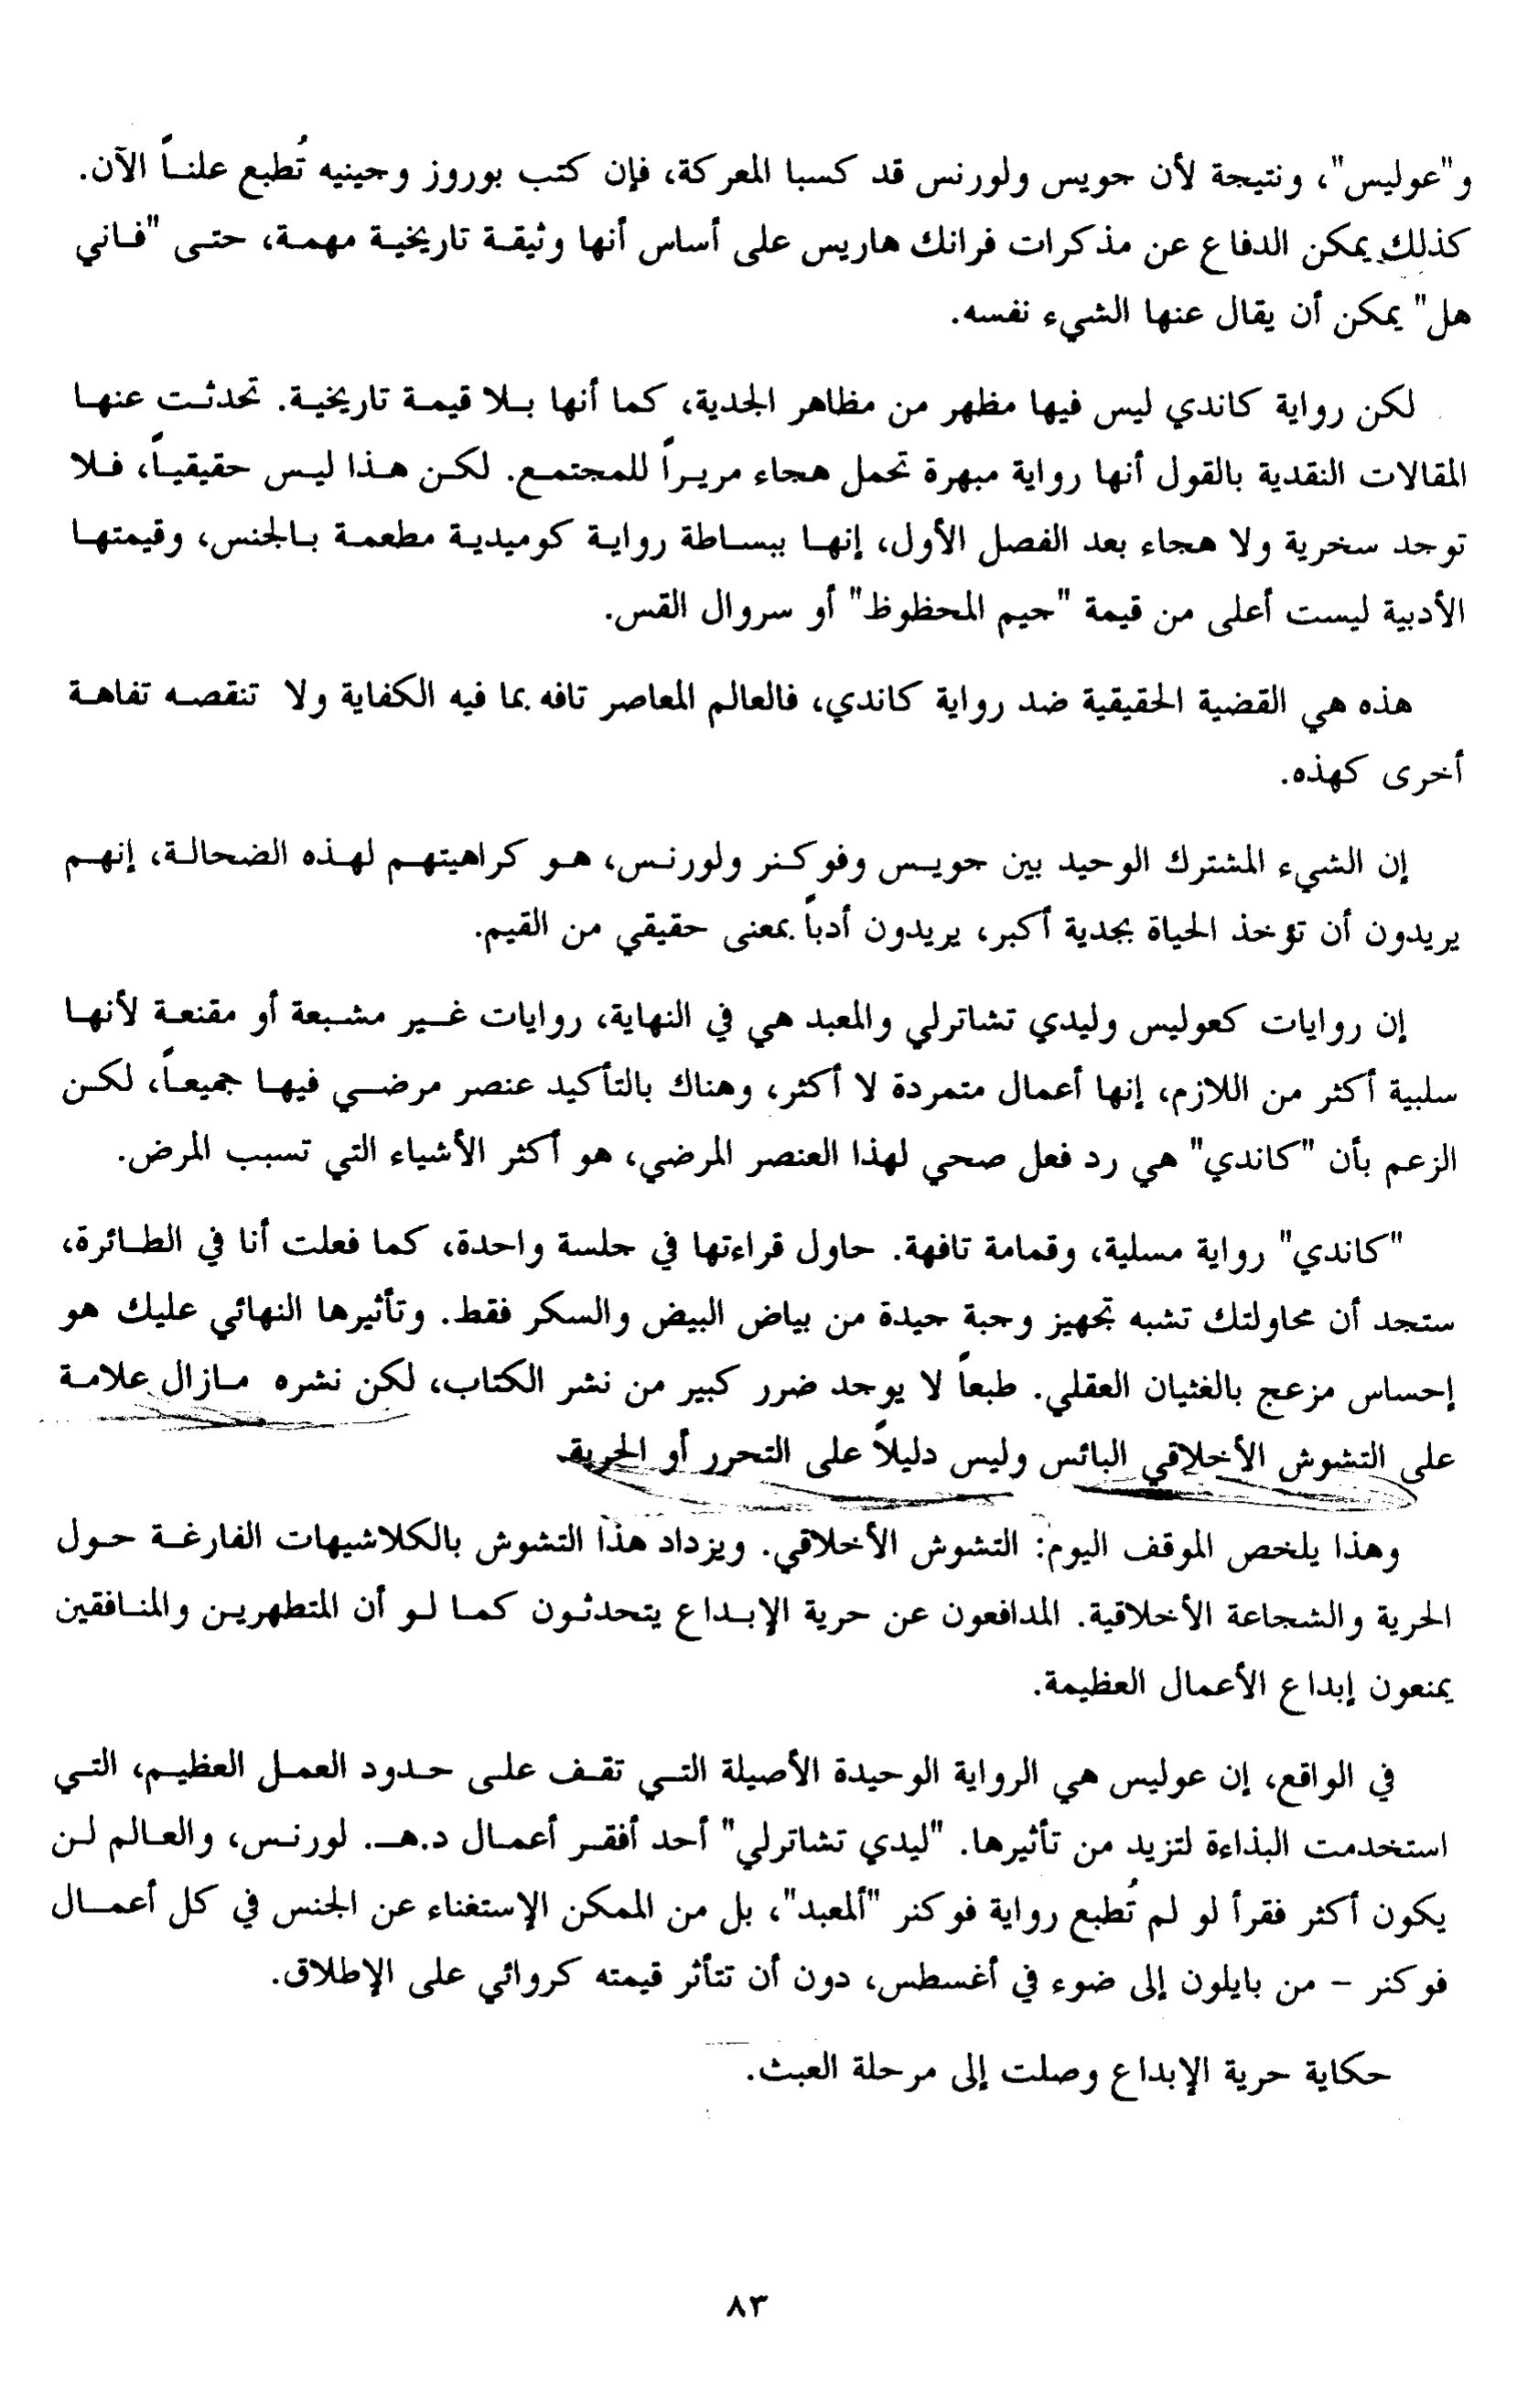 و"عوليس"، ونتيجة لأن جويس ولورنس قد كسبا المعركة، فإن كتب بوروز وجينيه تُطبع علناً الآن.
كذلك يمكن الدفاع عن مذكرات فرانك هاريس على أساس أنها وثيقة تاريخية مهمة، حتى "فاني
هل" يمكن أن يقال عنها الشيء نفسه.
لكن رواية كاندي ليس فيها مظهر من مظاهر الجدية، كما أنها بلا قيمة تاريخية. تحدثت عنها
المقالات النقدية بالقول أنها رواية مبهرة تحمل هجاء مريراً للمجتمع. لكن هذا ليس حقيقياً، فلا
توجد سخرية ولا هجاء بعد الفصل الأول، إنها ببساطة رواية كوميدية مطعمة بالجنس، وقيمتها
الأدبية ليست أعلى من قيمة "جيم المحظوظ" أو سروال القس.
هذه هي القضية الحقيقية ضد رواية كاندي، فالعالم المعاصر تافه بما فيه الكفاية ولا تنقصه تفاهة
أخرى كهذه.
إن الشيء المشترك الوحيد بين جويس وفوكنر ولورنس، هو كراهيتهم لهذه الضحالة، إنهم
يريدون أن تؤخذ الحياة بجدية أكبر، يريدون أدباً بمعنى حقيقي من القيم.
إن روايات كعوليس وليدي تشاترلي والمعبد هي في النهاية، روايات غير مشبعة أو مقنعة لأنها
سلبية أكثر من اللازم، إنها أعمال متمردة لا أكثر، وهناك بالتأكيد عنصر مرضي فيها جميعاً، لكن
الزعم بأن "كاندي" هي رد فعل صحي لهذا العنصر المرضي، هو أكثر الأشياء التي تسبب المرض.
"كاندي" رواية مسلية، وقمامة تافهة. حاول قراءتها في جلسة واحدة، كما فعلت أنا في الطائرة،
ستجد أن محاولتك تشبه تجهيز وجبة جيدة من بياض البيض والسكر فقط. وتأثيرها النهائي عليك هو
إحساس مزعج بالغثيان العقلي. طبعاً لا يوجد ضرر كبير من نشر الكتاب، لكن نشره مازال علامة
على التشوش الأخلاقي البائس وليس دليلاً على التحرر أو الحرية.
وهذا يلخص الموقف اليوم: التشوش الأخلاقي. ويزداد هذا التشوش بالكلاشيهات الفارغة حول
الحرية والشجاعة الأخلاقية. المدافعون عن حرية الإبداع يتحدثون كما لو أن المتطهرين والمنافقين
يمنعون إبداع الأعمال العظيمة.
في الواقع، إن عوليس هي الرواية الوحيدة الأصيلة التي تقف على حدود العمل العظيم، التي
استخدمت البذاءة لتزيد من تأثيرها. "ليدي تشاترلي" أحد أفقر أعمال د.هـ. لورنس، والعالم لن
يكون أكثر فقرأ لو لم تُطبع رواية فوكنر "ألمعبد"، بل من الممكن الإستغناء عن الجنس في كل أعمال
فوكنر - من بايلون إلى ضوء في أغسطس، دون أن تتأثر قيمته كروائي على الإطلاق.
حكاية حرية الإبداع وصلت إلى مرحلة العبث.
٨٣